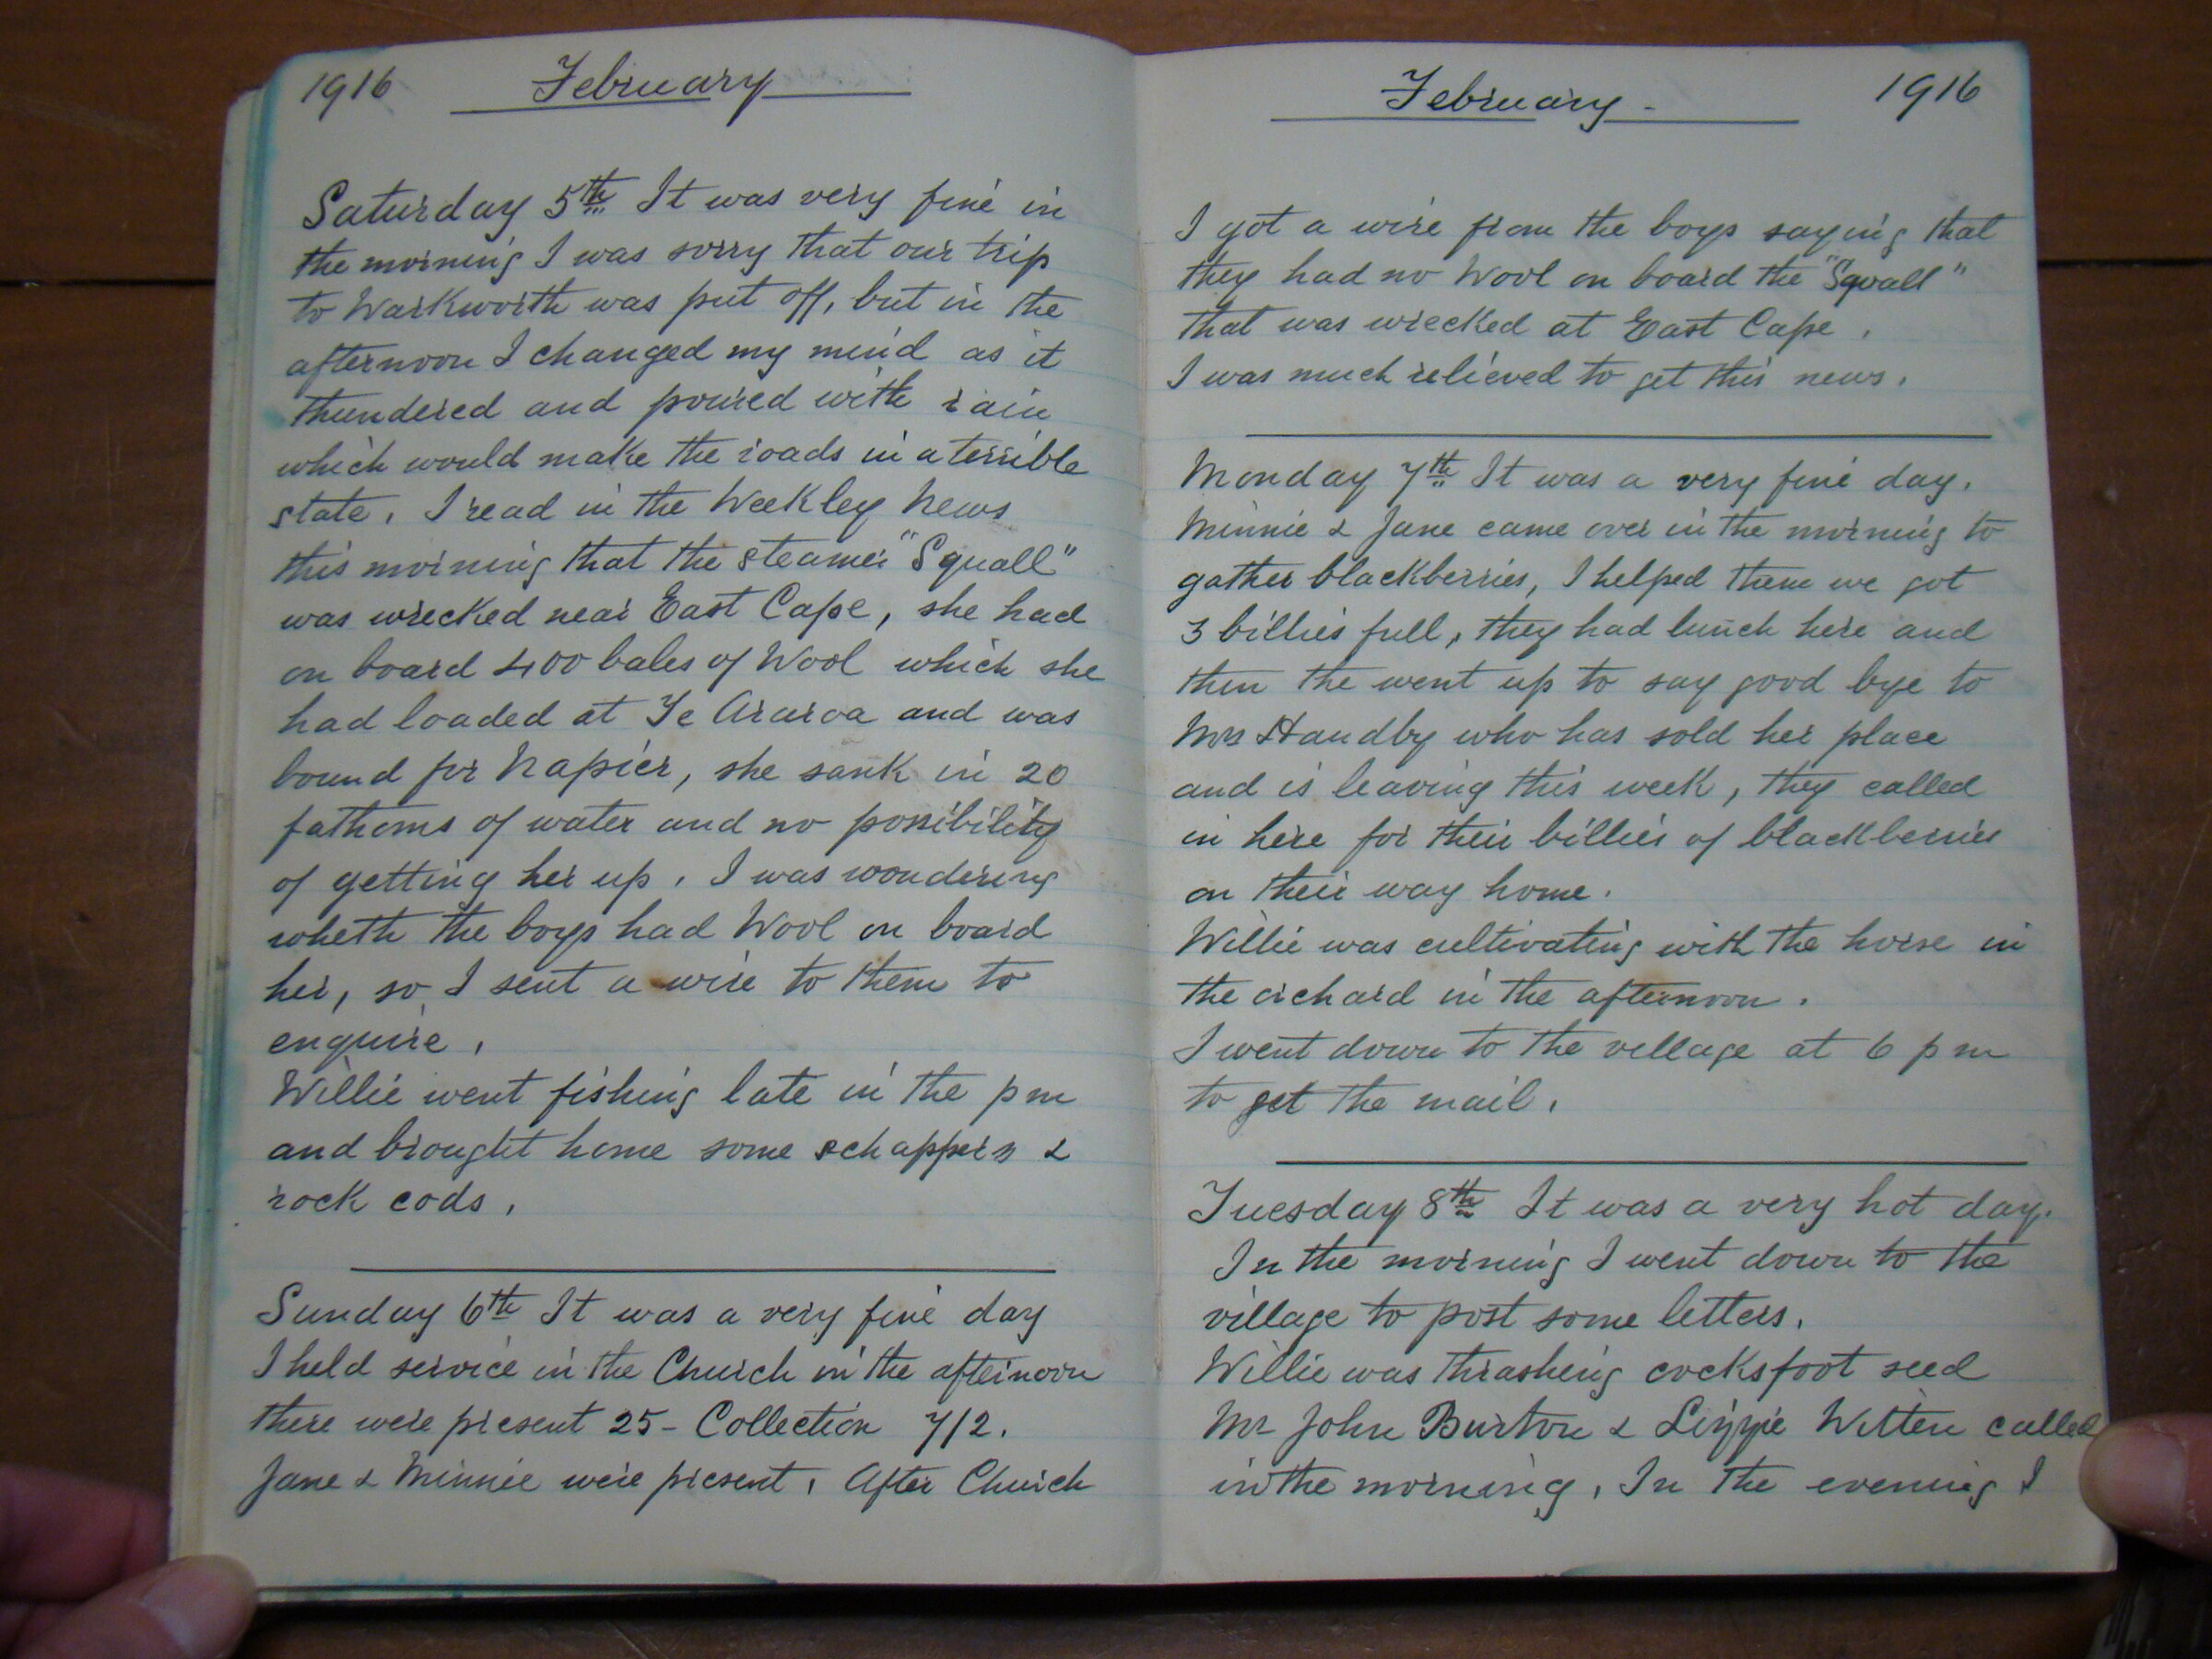 1916 February
Saturday 5th It was very fine in
the morning I was sorry that our trip
to Warkworth was put off, but in the
afternoon I changed my mind as it
thundered and poured with rain
which would make the roads in a terrible
state. I read in the Weekley News
this morning that the steamer "Squall"
was wrecked near East Cape, she had
on board 400 bales of Wool which she
had loaded at Te Araroa and was
bound for Napier, she sank in 20
fathoms of water and no possibility
of getting her up. I was wondering
wheth the boys had Wool on board
her, so I sent a wire to them to
enquire.
Willie went fishing late in the pm
and brought home some schappers &
rock cods.
Sunday 6th It was a very fine day
I held service in the Church in the afternoon
there were present 25 - Collection 7/2.
Jane & Minnie were present. After Church
February - 1916
I got a wire from the boys saying that
they had no Wool on board the "Squall"
that was wrecked at East Cape.
I was much relieved to get this news.
Monday 7th It was a very fine day.
Minnie & Jane came over in the morning to
gather blackberries, I helped them we got
3 billies full, they had lunch here and
then the went up to say good bye to
Mrs Handby who has sold her place
and is leaving this week, they called
in here for their billies of blackberries
on their way home.
Willie was cultivating with the horse in
the orchard in the afternoon.
I went down to the village at 6 pm
to get the mail.
Tuesday 8th It was a very hot day.
In the morning I went down to the
village to post some letters.
Willie was thrashing cocksfoot seed
Mr John Burton & Lizzie Witten called
in the morning. In the evening I